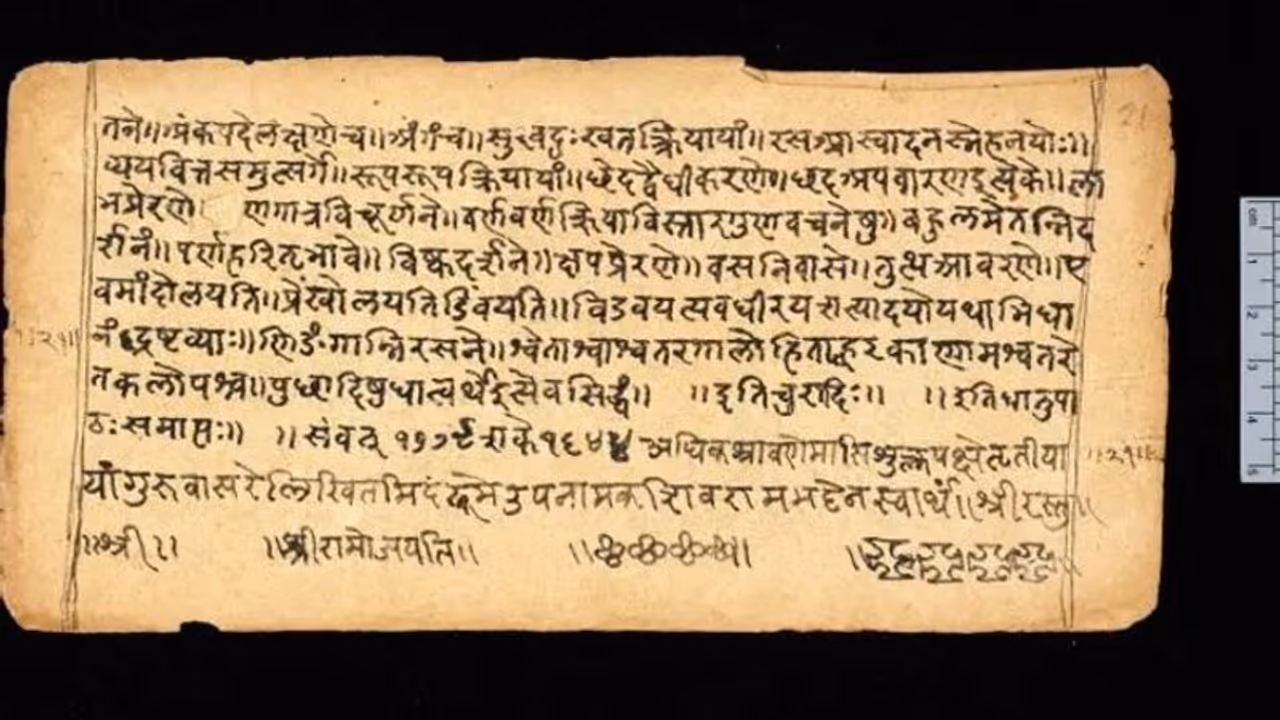 तने॥अंकपदेलक्षणेच॥अंगंच॥सुखदुःखतत्क्रियायां॥रसआस्वादनस्नेहनयोः॥
व्ययवित्तसमुत्सर्गे॥रूपरूपक्रियायां॥छेदद्वैधीकरणे॥छदअपवारणइत्येके॥ला
भप्रेरणे॥ व्रणगात्रविचूर्णने॥वर्णवर्णक्रियाविस्तारगुणवचनेषु॥बहुलमेतन्निद
र्शनं॥पर्णहरितभावे॥विष्कदर्शने॥क्षपप्रेरणे॥वसनिवासे॥तुत्थआवरणे॥ए
वमांदोलयति॥प्रेंखोलयतिडिंबयति॥विडंबयत्यवधीरयत्यादयोयथाभिधा
नंद्रष्टव्याः॥णिङंगान्निरसने॥श्वेताश्वाश्वतरगालोहिताह्वरकाणामश्वतरे
तकलोपश्च॥पुछादिषुधात्वर्थेइत्येवसिद्धं॥ ॥इतिचुरादिः॥ ॥इतिधातुपा
ठःसमाप्तः॥ ॥संवत् १७७९ शके१६४४ अधिकश्रावणेमासिशुक्लपक्षेतृतीया
यांगुरुवासरेलिखितमिदं स्वार्थं॥श्रीरस्तु॥
॥श्री॥ ॥श्रीरामोजयति॥
॥२१॥
॥२१॥
21